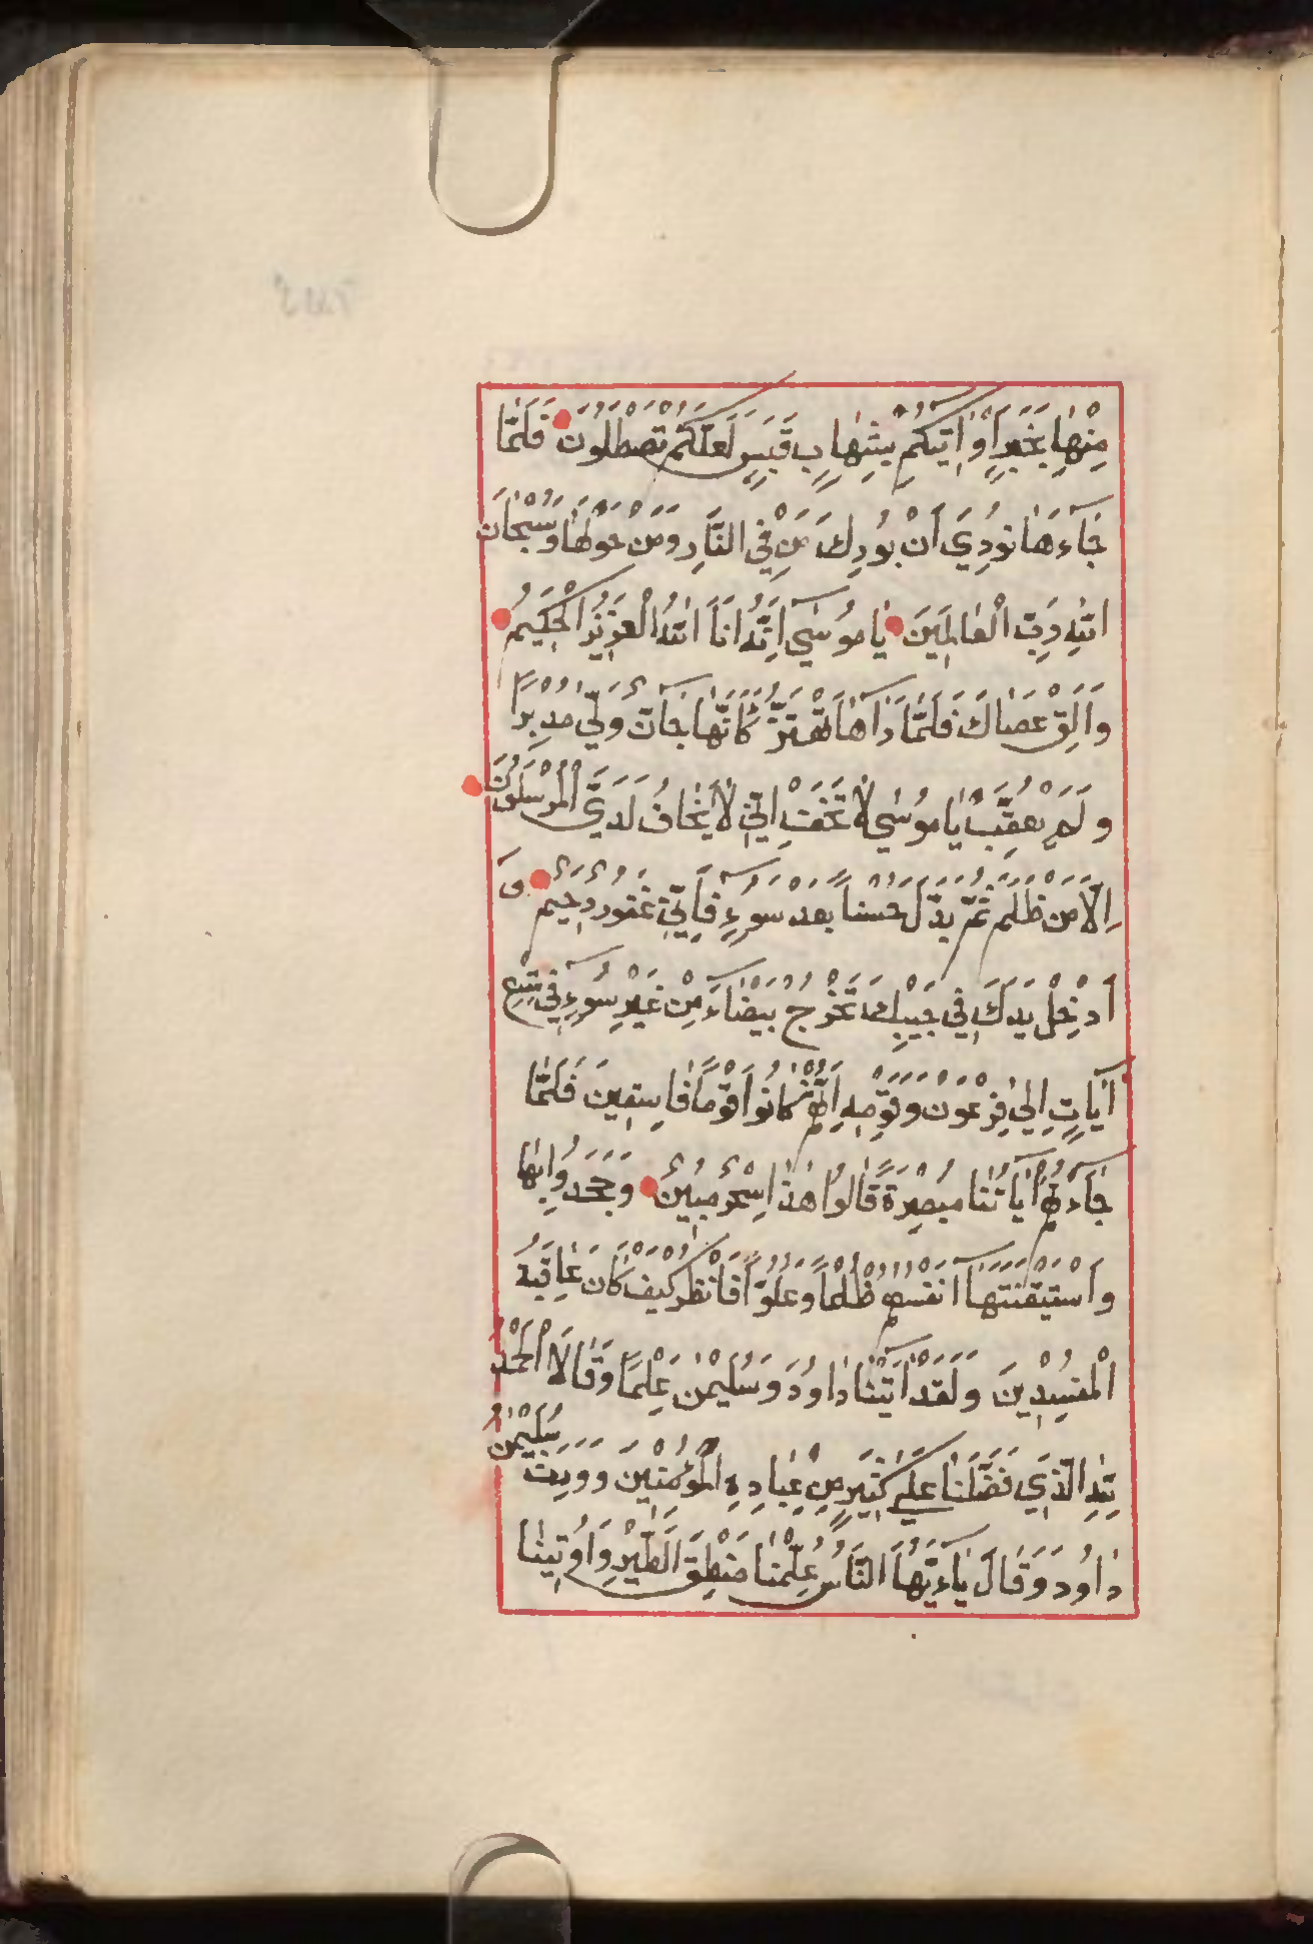 مِنْهَا بِخَبَرٍ أَوْ اٰتِيكُمْ بِشِهَابٍ قَبَسٍ لَعَلَّكُمْ تَصْطَلُونَ فَلَمَّا
جَآءَهَا نُودِيَ أَنْ بُورِكَ مَنْ فِي النَّارِ وَمَنْ حَوْلَهَا وَسُبْحَانَ
اللهِ رَبِّ الْعَالَمِينَ يَا مُوسٰى إِنَّهُ أَنَا اللهُ الْعَزِيزُ الْحَكِيمُ
وَأَلْقِ عَصَاكَ فَلَمَّا رَآهَا تَهْتَزُّ كَأَنَّهَا جَآنٌّ وَلّٰي مُدْبِرًا
وَلَمْ يُعَقِّبْ يَا مُوسٰي لَا تَخَفْ اِنِّي لَا يَخَافُ لَدَيَّ الْمُرْسَلُونَ
إِلَّا مَنْ ظَلَمَ ثُمَّ بَدَّلَ حُسْناً بَعْدَ سُوٓءٍ فَاِنِّي غَفُورٌ رَحِيمٌ وَ
اَدْخِلْ يَدَكَ فِي جَيْبِكَ تَخْرُجْ بَيْضَآءَ مِنْ غَيْرِ سُوٓءٍ فِي تِسْعِ
آيَاتٍ اِلٰي فِرْعَوْنَ وَقَوْمِهِ اِنَّهُمْ كَانُوا قَوْماً فَاسِقِينَ فَلَمَّا
جَآءَتْهُمْ اٰيَاتُنَا مُبْصِرَةً قَالُوا هٰذَا سِحْرٌ مُبِينٌ وَجَحَدُوا بِهَا
وَاسْتَيْقَنَتْهَآ اَنْفُسُهُمْ ظُلْماً وَعُلُوّاً فَانْظُرْ كَيْفَ كَانَ عَاقِبَةُ
الْمُفْسِدِينَ وَلَقَدْ اٰتَيْنَا دَاوُدَ وَسُلَيْمٰنَ عِلْمًا وَقَالَا الْحَمْدُ
لِلهِ الَّذِي فَضَّلَنَا عَلٰي كَثِيرٍ مِنْ عِبَادِهِ الْمُؤْمِنِينَ وَوَرِثَ سُلَيْمٰنُ
دَاوُدَ وَقَالَ يَآءَيُّهَا النَّاسُ عُلِّمْنَا مَنْطِقَ الطَّيْرِ وَاُوتِينَا